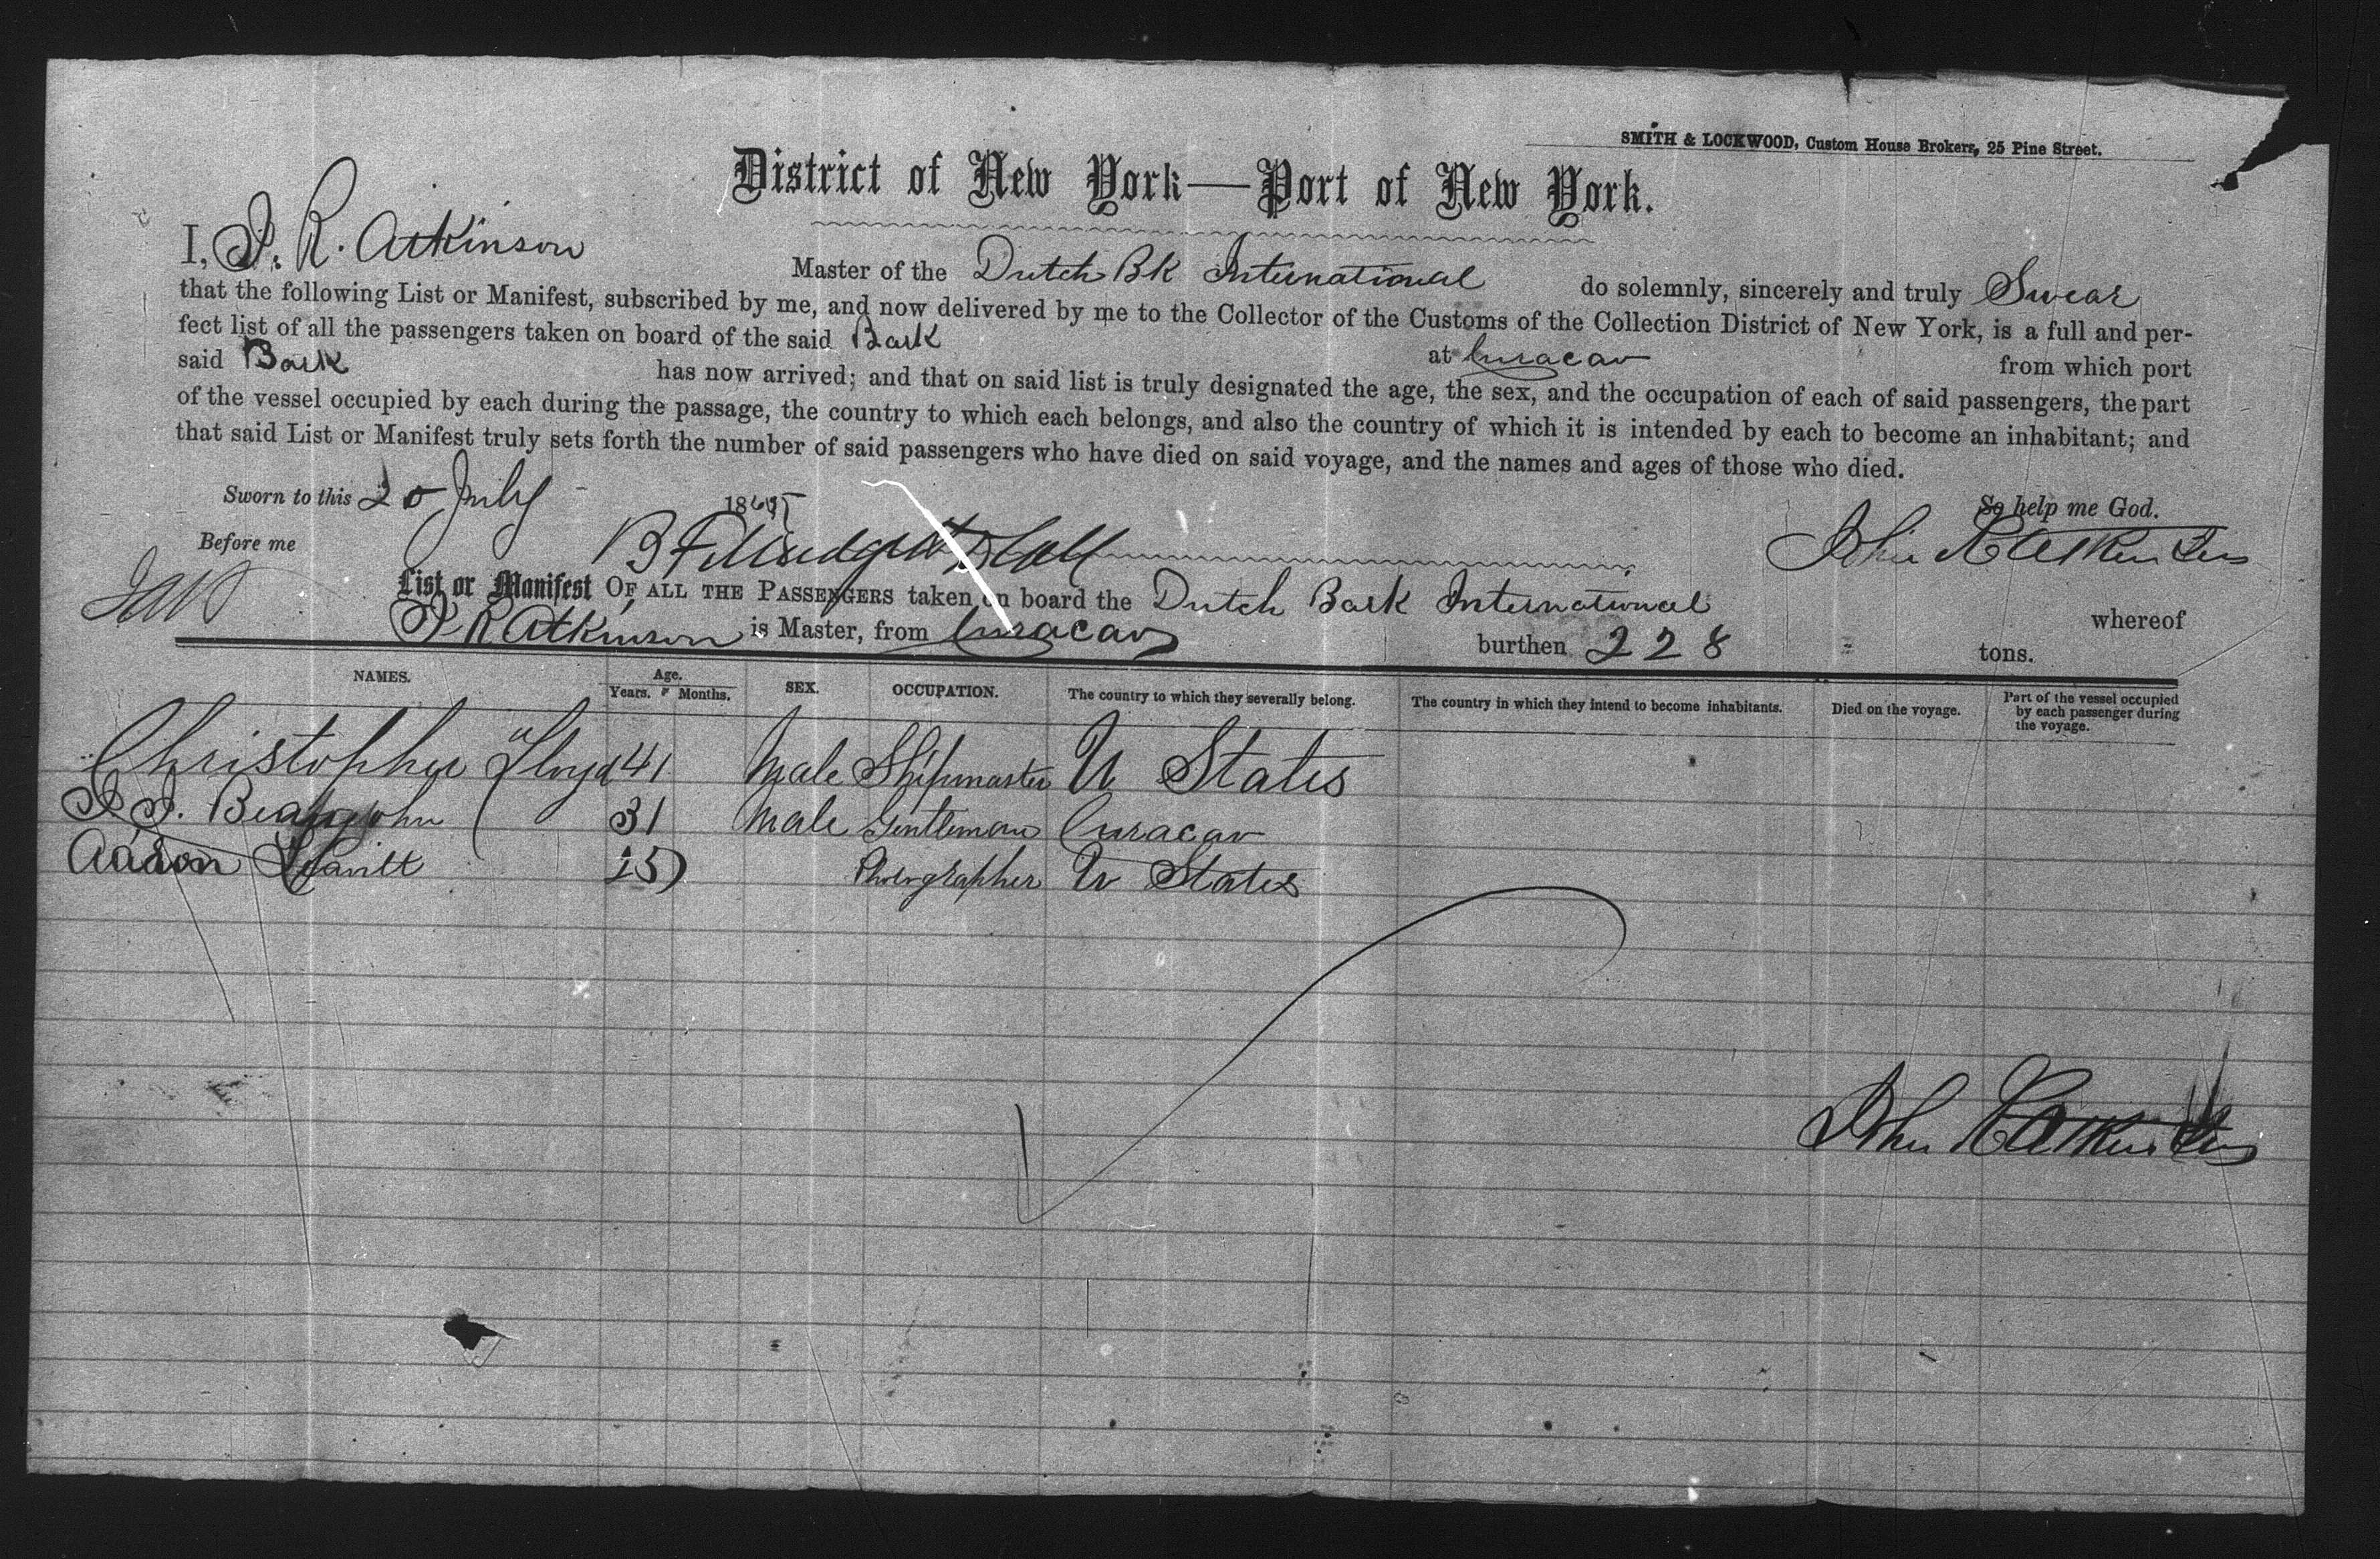 SMITH & LOCKWOOD, Custom House Brokers, 25 Pine Street.
District of New York—Port of New York.
I, J. R. Atkinson Master of the Dutch Bk International do solemnly, sincerely and truly Swear
that the following List or Manifest, subscribed by me, and now delivered by me to the Collector of the Customs of the Collection District of New York, is a full and per-
fect list of all the passengers taken on board of the said Bark at Curacao from which port
said Bark has now arrived; and that on said list is truly designated the age, the sex, and the occupation of each of said passengers, the part
of the vessel occupied by each during the passage, the country to which each belongs, and also the country of which it is intended by each to become an inhabitant; and
that said List or Manifest truly sets forth the number of said passengers who have died on said voyage, and the names and ages of those who died.
Sworn to this 20 July 1865 So help me God.
Before me John R Atkinson
List or Manifest OF ALL THE PASSENGERS taken on board the Dutch Bark International whereof
J R Atkinson is Master, from Curacao burthen 228 tons.
NAMES. Age. Years. Months. SEX. OCCUPATION. The country to which they severally belong. The country in which they intend to become inhabitants. Died on the voyage. Part of the vessel occupied by each passenger during the voyage.
Christopher Lloyd 41 Male Shipmaster U States
J. J. Beaujohn 31 Male Gentleman Curacao
Aaron 25 Photographer U States
John R Atkinson